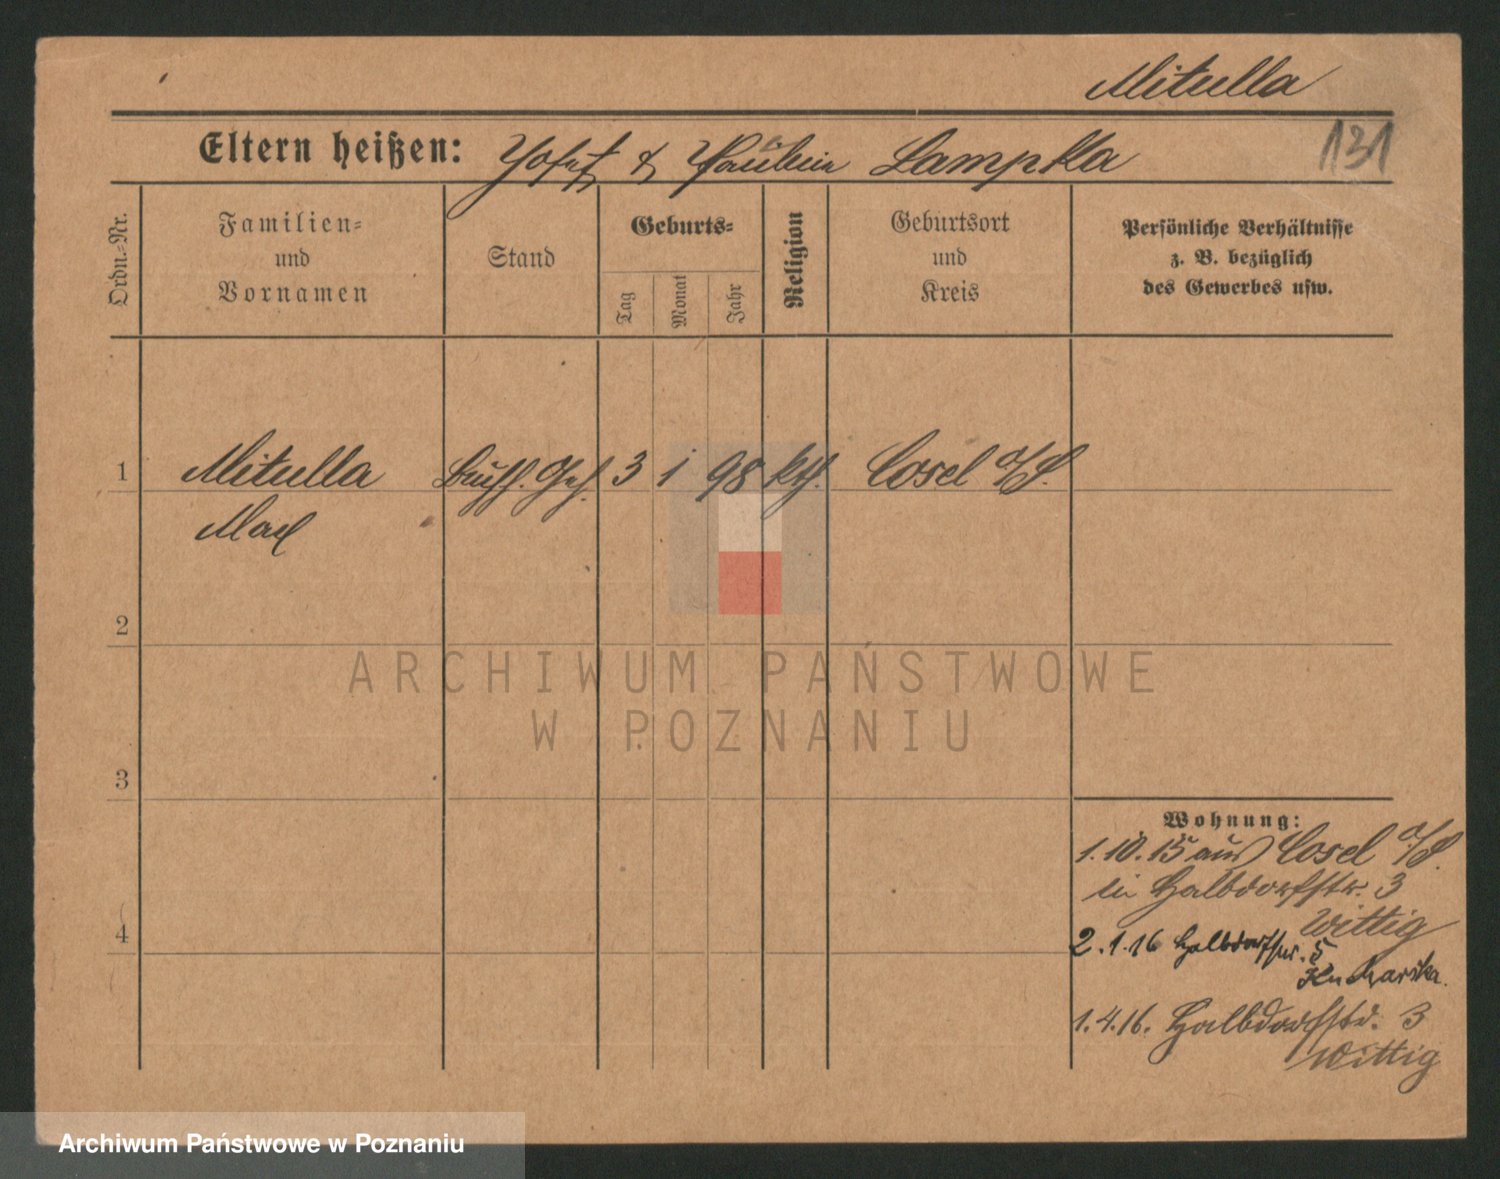 Mitulla
Eltern heißen: Josef & Paulein Lampka
131
Ordn.-Nr.
Familien-
und
Vornamen
Stand
Geburts-
Tag
Monat
Jahr
Religion
Geburtsort
und
Kreis
Persönliche Verhältnisse
z. B. bezüglich
des Gewerbes usw.
1 Mitulla 3 1 98 kth. Cosel O/S.
Max
2
3
4
Wohnung:
1.10.15 aus Cosel O/S.
in Halbdorfstr. 3
Wittig
2.1.16 Halbdorfstr. 5
Kucharska.
1.4.16. Halbdorfstr. 3
Wittig
ARCHIWUM PAŃSTWOWE
W POZNANIU
Archiwum Państwowe w Poznaniu